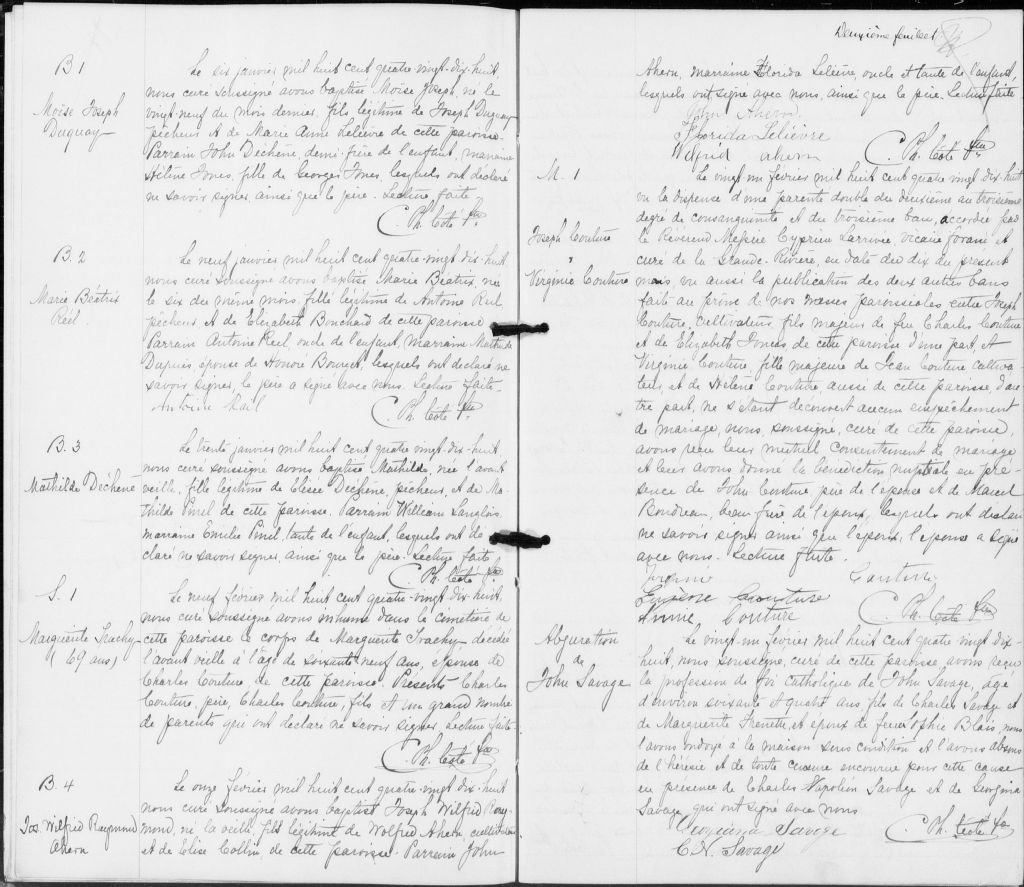 B 1
Moïse Joseph
Duguay
Le six janvier mil huit cent quatre-vingt-dix-huit,
nous curé soussigné avons baptisé Moïse Joseph, né le
vingt-neuf du mois dernier, fils légitime de Joseph Duguay
pêcheur et de Marie Anne Lelièvre de cette paroisse.
Parrain John Dechêne, demi-frère de l'enfant, marraine
Hélène Jones, fille de Georges Jones lesquels ont déclaré
ne savoir signer, ainsi que le père. Lecture faite
C. Ph. Coté Ptre
B. 2
Marie Béatrix
Réil.
Le neuf janvier mil huit cent quatre-vingt-dix-huit
nous curé soussigné avons baptisé Marie Béatrix née
le six du même mois, fille légitime de Antoine Reil
pêcheur et de Elizabeth Bouchard de cette paroisse
Parrain Antoine Reil, oncle de l'enfant, marraine Mathilde
Dupuis, épouse de Honoré Bourget, lesquels ont déclaré ne
savoir signer, le père a signé avec nous. Lecture faite
Antoine
C. Ph. Coté Ptre
B. 3
Mathilde Dechêne
Le trente janvier mil huit cent quatre-vingt-dix-huit
nous curé soussigné avons baptisé Mathilde, née l'avant
veille, fille légitime de Elisée Dechêne, pêcheur, et de Ma-
thilde Pinel de cette paroisse. Parrain William Langlois,
marraine Emilie Pinel, tante de l'enfant, lesquels ont dé-
claré ne savoir signer, ainsi que le père. Lecture faite
C. Ph. Coté Ptre
S. 1
Marguerite Trachy
(69 ans)
Le neuf février mil huit cent quatre-vingt dix huit,
nous curé soussigné avons inhumé dans le cimetière de
cette paroisse le corps de Marguerite Trachy décédée
l'avant veille à l'âge de soixante neuf ans, épouse de
Charles Couture, de cette paroisse. Présents Charles
Couture, père, Charles Couture, fils et un grand nombre
de parents qui ont déclaré ne savoir signer. Lecture faite
C. Ph. Coté Ptre
B. 4
Jos. Wilfrid Raymond
Ahern
Le onze février mil huit cent quatre-vingt-dix-huit
nous curé soussigné avons baptisé Joseph Wilfrid Ray-
mond, né la veille, fils légitime de Wilfrid Ahern cultivateur
et de Elise Collin, de cette paroisse. Parrain John
Deuxième feuillet
Ahern, marraine Florida Lelièvre, oncle et tante de l'enfant,
lesquels ont signé avec nous, ainsi que le père. Lecture faite
John Ahern
Florida Lelièvre
Wilfrid Ahern
C. Ph. Coté Ptre
M. 1
Joseph Couture
"
Virginie Couture
Le vingt un février mil huit cent quatre vingt dix huit
vu la dispense d'une parenté double du deuxième au troisième
degré de consanguinité et du troisième ban, accordée par
le Révérend Messire Cyprien Larrivée vicaire forain et
curé de la Grande-Rivière, en date du dix du présent
mois, vu aussi la publication des deux autres bans
faite au prône de nos messes paroissiales entre Joseph
Couture, cultivateur, fils majeur de feu Charles Couture
et de Elizabeth de cette paroisse d'une part, et
Virginie Couture, fille majeure de Jean Couture cultiva-
teur, et de Hélène Couture, aussi de cette paroisse, d'au-
tre part, ne s'étant découvert aucun empêchement
de mariage, nous, soussigné, curé de cette paroisse,
avons reçu leur mutuel consentement de mariage
et leur avons donné la bénédiction nuptiale en pré-
sence de John Couture père de l'épouse et de Marcel
Boudreau, beau frère de l'époux, lesquels ont déclaré
ne savoir signer ainsi que l'époux, l'épouse a signé
avec nous. Lecture faite.
Virginie Couture
Couture
Annie Couture
C. Ph. Coté Ptre
Abjuration
de
John Savage
Le vingt-un février mil huit cent quatre vingt dix-
huit, nous soussigné, curé de cette paroisse, avons reçu
la profession de foi catholique de John Savage, âgé
d'environ soixante et quatre ans fils de Charles Savage et
de Marguerite Frenette et époux de feue Sophie Blais, nous
l'avons ondoyé à la maison sous condition et l'avons absous
de l'hérésie et de toute censure encourue pour cette cause
en présence de Charles Napoléon Savage et de Georgina
Savage, qui ont signé avec nous
Georgiana Savage
C. N. Savage
C. Ph. Coté Ptre